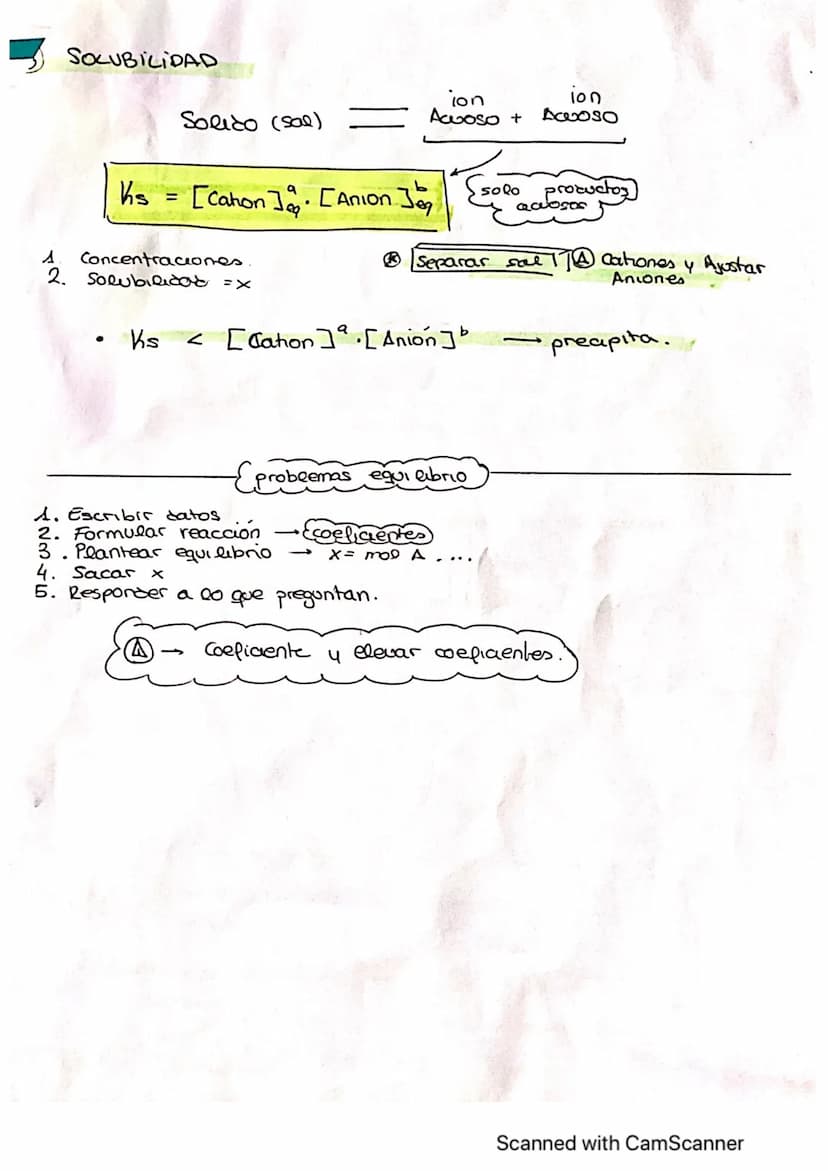 SOLUBILIDAD
ion ion
Solido (sal) Acuoso + Acuoso
Ks = [Cation]ᵃeq · [Anion]ᵇeq
solo productos
acuosos
1. Concentraciones.
2. Solubilidad = x
* Separar sal Cationes y Ajustar
Aniones
• Ks < [Cation]ᵃ · [Anión]ᵇ → precipita.
problemas equilibrio
1. Escribir datos
2. Formular reacción → coeficientes
3. Plantear equilibrio → x = mol A ....
4. Sacar x
5. Responder a lo que preguntan.
⚠ → Coeficiente y elevar coeficientes.
Scanned with CamScanner